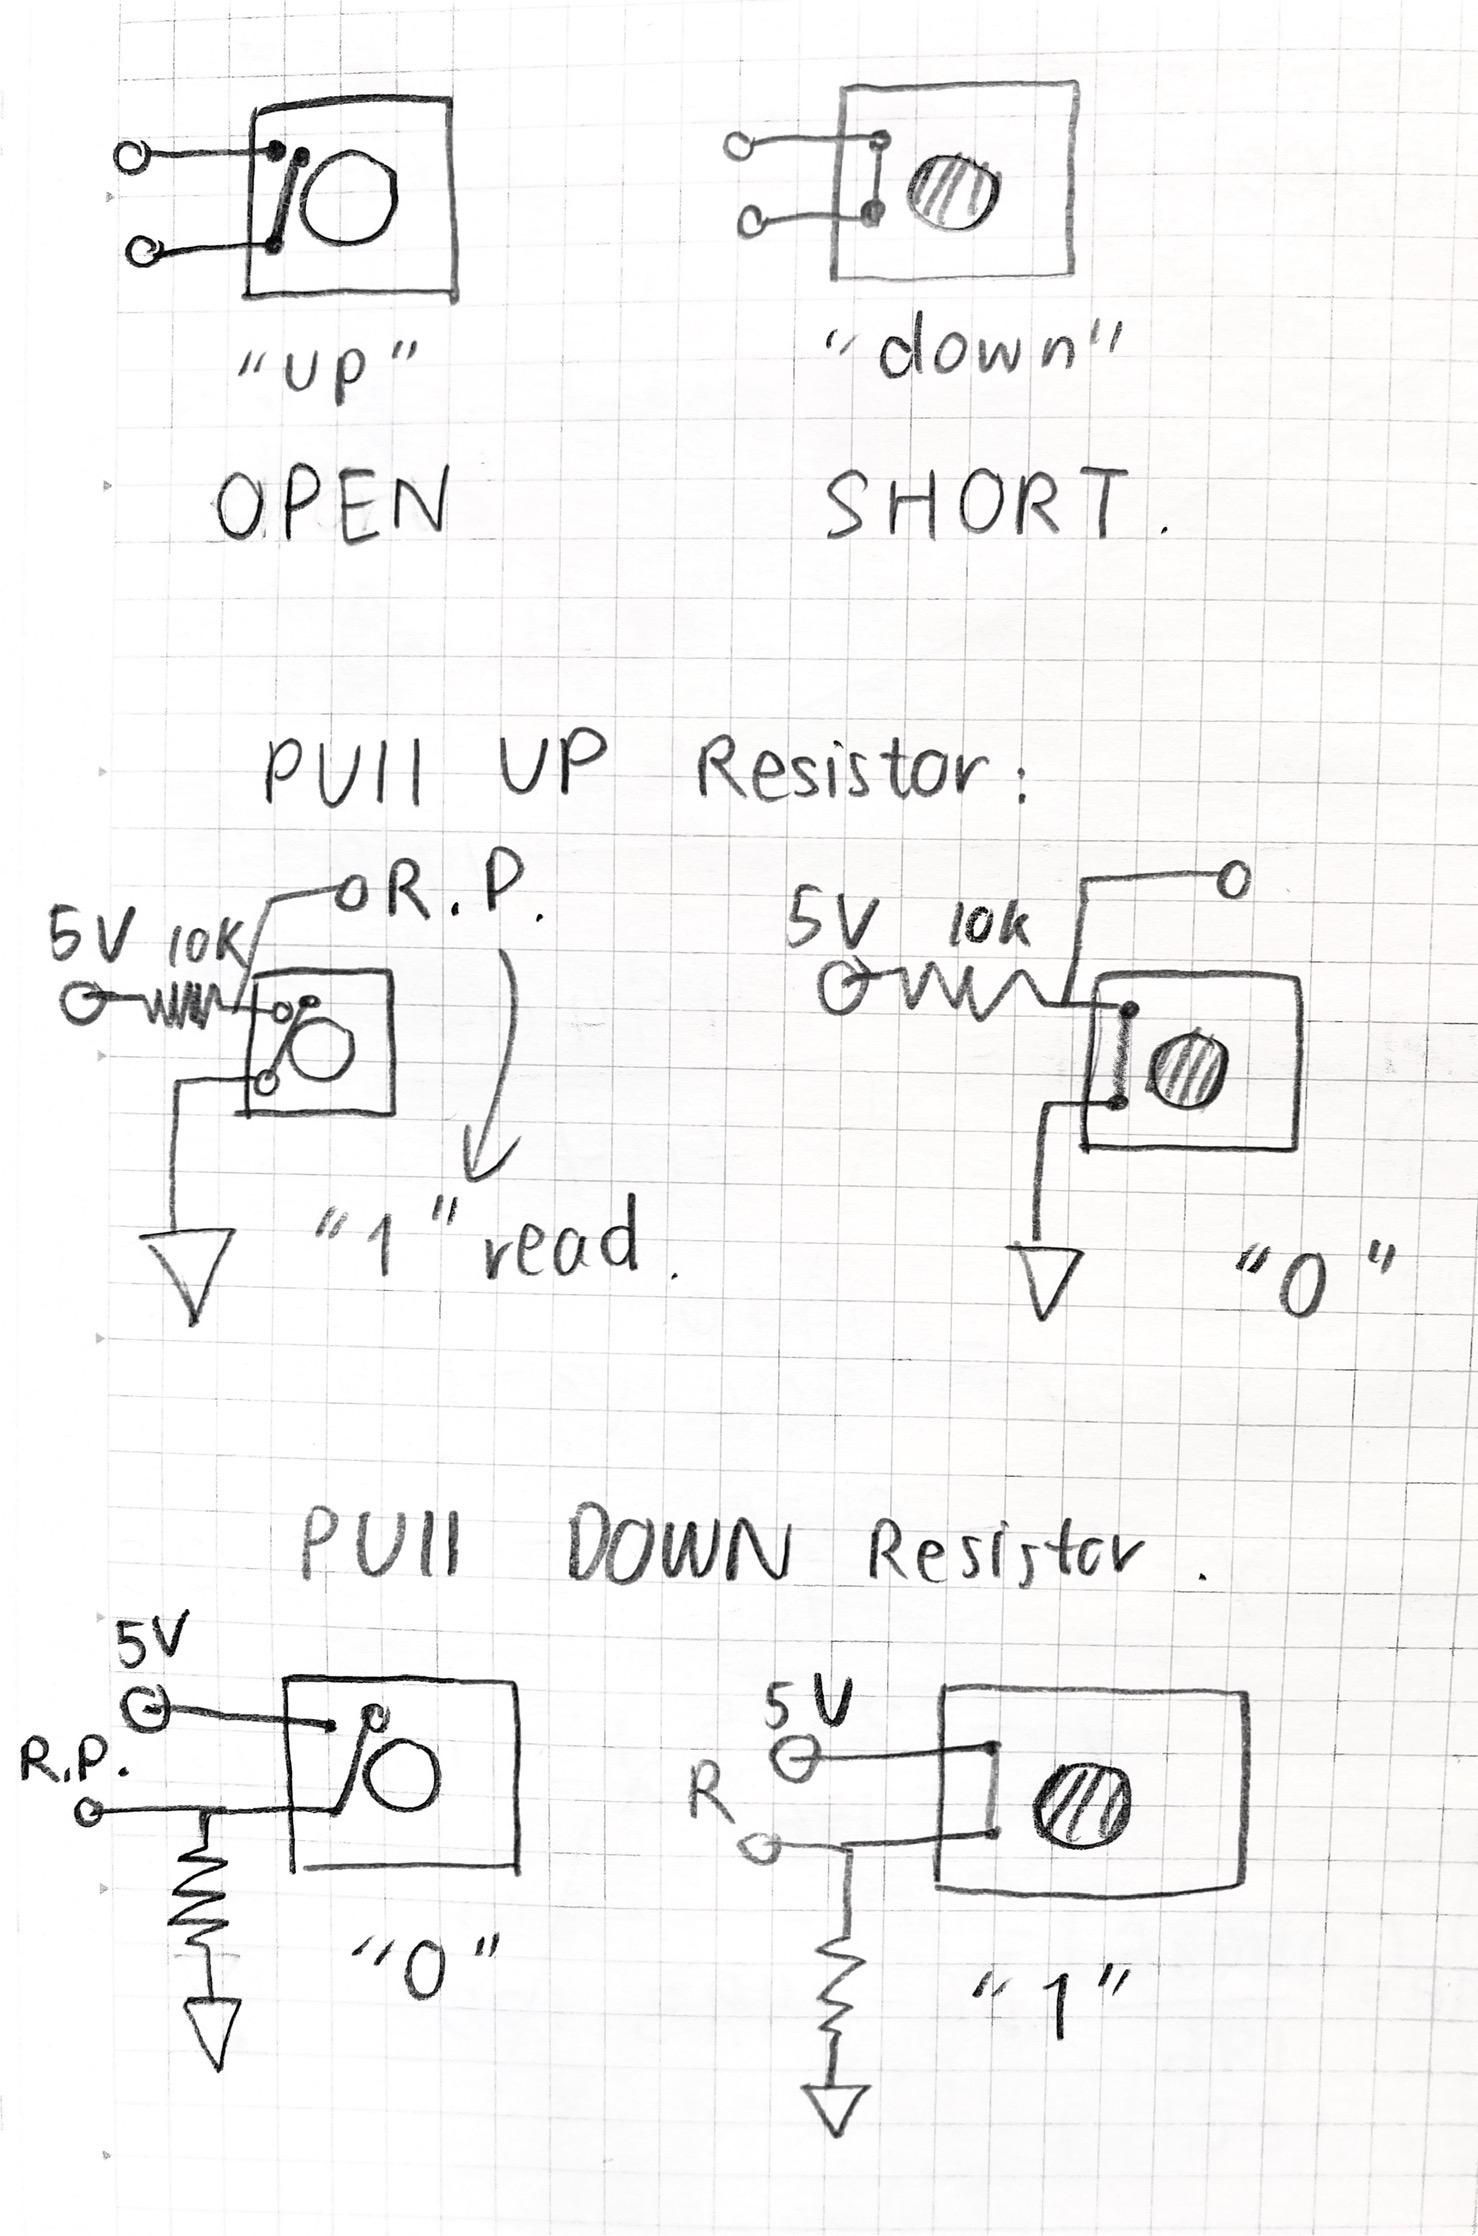 "up" "down"
OPEN SHORT.
PUll UP Resistor:
R.P.
5V 10K 5V 10k
"1" read. "0"
PUll DOWN Resistor.
5V 5V
R.P. R
"0" "1"